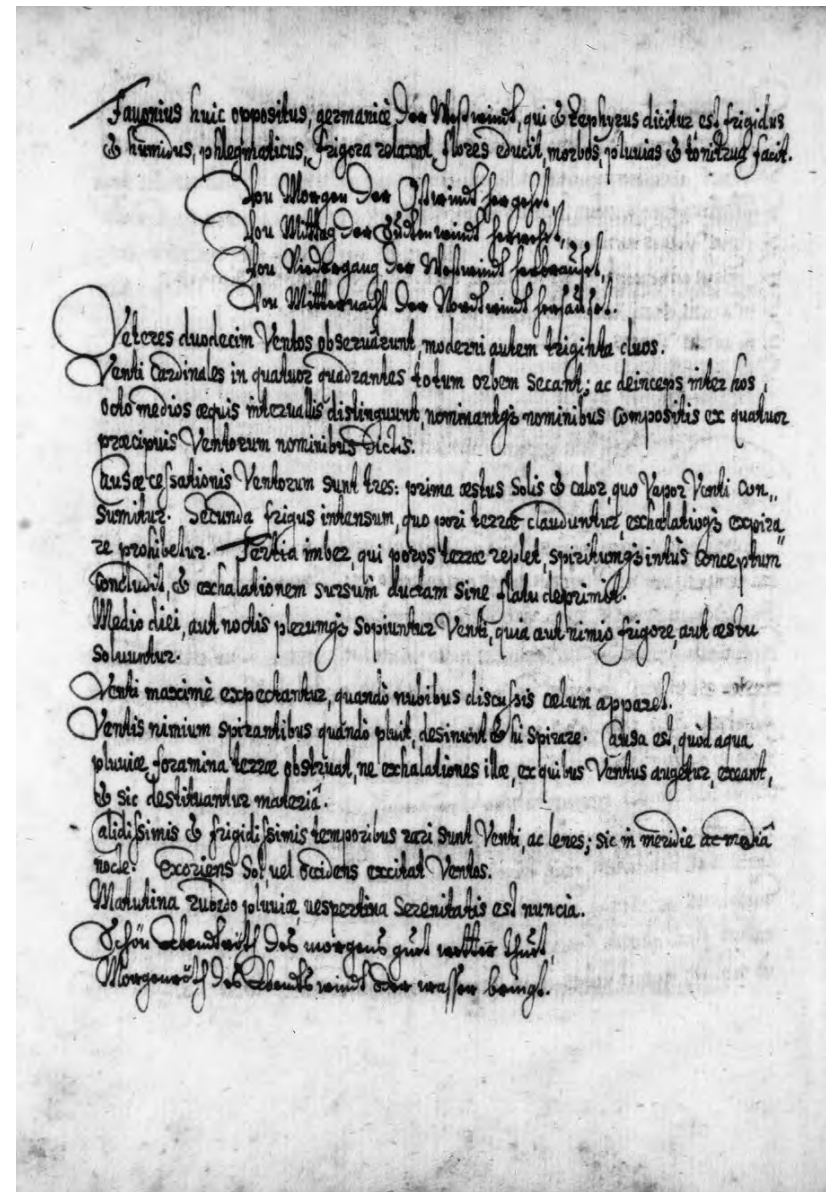 Fauonius huic oppositus, germanicè Der Westwindt, qui & Zephyrus dicitur est frigidus
& humidus, phlegmaticus, frigora relaxat, flores educit, morbos, pluvias & tonitrua facit.
Von Morgen der Ostwindt hergeht,
Von Mittag der Sudtenwindt herweht,
Von Niedergang der Westwindt herbraußt,
Von Mitternacht der Nordtwindt hersaußt.
Veteres duodecim Ventos observârunt, moderni autem triginta duos.
Venti Cardinales in quatuor quadrantes totum orbem secant; ac deinceps inter hos
octo medios æquis intervallis distinguunt, nominantq3 nominibus compositis ex quatuor
præcipuis Ventorum nominibus dictis.
Causæ cessationis Ventorum sunt tres: prima æstus Solis & calor, quo Vapor Venti con„
sumitur. Secunda frigus intensum, quo pori terræ clauduntur, exhalatioq3 expira
re prohibetur. Tertia imber, qui poros terræ replet, spiritumq3 intùs conceptum
concludit, & exhalationem sursum ductam sine flatu deprimit.
Medio diei, aut noctis plerumq3 sopiuntur Venti, quia aut nimio frigore, aut æstu
soluuntur.
Venti maximè expectantur, quandò nubibus discussis cælum apparet.
Ventis nimium spirantibus quandò pluit, desinunt & hi spirare. Causa est, quòd aqua
pluviæ foramina terræ obstruat, ne exhalationes illæ, ex quibus Ventus augetur, exeant,
& sic destituantur materiâ.
Calidissimis & frigidissimis temporibus rari sunt Venti, ac lenes; sic in meridie ac mediâ
nocte. Exoriens Sol, uel occidens excitat Ventos.
Matutina rubedo pluviæ, uespertina Serenitatis est nuncia.
Schön Abendtröth des morgens gut wetter thut,
Morgenröth des Abendts windt oder wasser bringt.